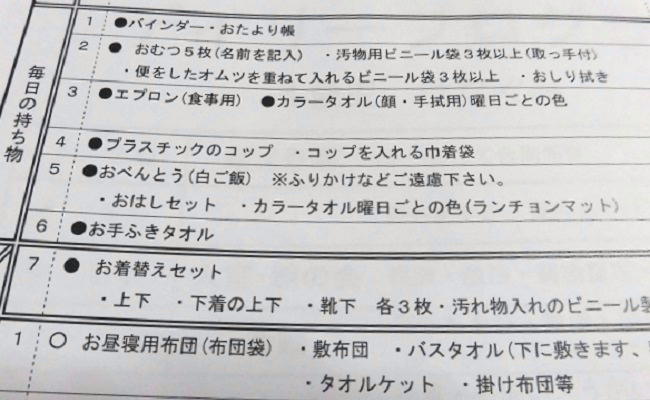 毎日の持ち物
1 ●バインダー・おたより帳
2 ● おむつ5枚(名前を記入) ・汚物用ビニール袋3枚以上(取っ手付)
・便をしたオムツを重ねて入れるビニール袋3枚以上 ・おしり拭き
3 ●エプロン(食事用) ●カラータオル(顔・手拭用)曜日ごとの色
4 ●プラスチックのコップ ・コップを入れる巾着袋
5 ●おべんとう(白ご飯) ※ふりかけなどご遠慮下さい。
・おはしセット ・カラータオル曜日ごとの色(ランチョンマット)
6 ●お手ふきタオル
7 ● お着替えセット
・上下 ・下着の上下 ・靴下 各3枚・汚れ物入れのビニール製
1 ○ お昼寝用布団(布団袋) ・敷布団 ・バスタオル(下に敷きます、
・タオルケット ・掛け布団等